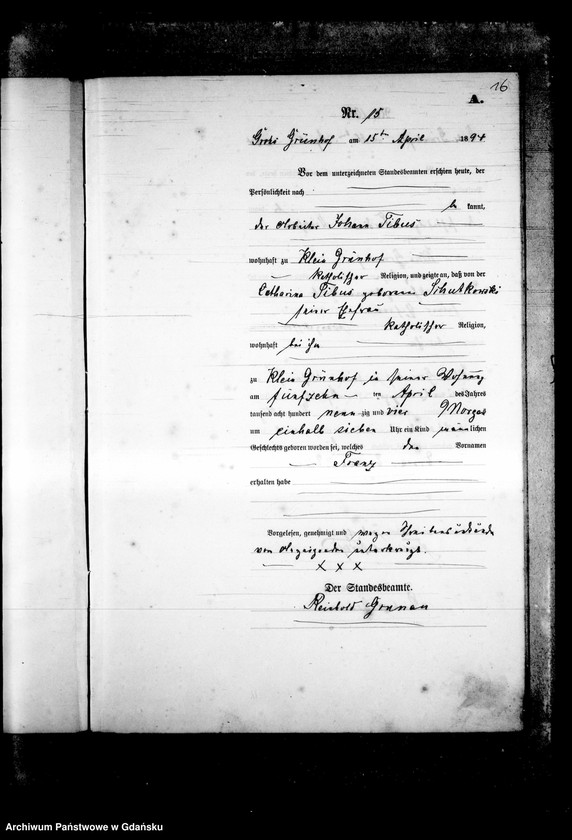 16
A.
Nr. 15
Groß Grünhof am 15ten April 1894
Vor dem unterzeichneten Standesbeamten erschien heute, der
Persönlichkeit nach
be kannt,
der Arbeiter Johann Tibus
wohnhaft zu Klein Grünhof
katholischer Religion, und zeigte an, daß von der
Catharina Tibus geborenen Schutkowski
seiner Ehefrau
katholischer Religion,
wohnhaft bei ihm
zu Klein Grünhof in seiner Wohnung
am fünfzehn ten April des Jahres
tausend acht hundert neun zig und vier Morgens
um einhalb sieben Uhr ein Kind männlichen
Geschlechts geboren worden sei, welches den Vornamen
Franz
erhalten habe
Vorgelesen, genehmigt und wegen Schreibensunkunde
vom Anzeigenden unterkreuzt.
x x x
Der Standesbeamte.
Reinhold Grunau
Archiwum Państwowe w Gdańsku